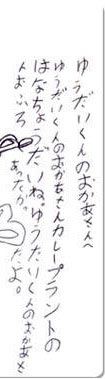 ゆうだいくんのおかあさんへ
ゆうだいくんのおかあさんカレープラントの
はなちょうだいね。ゆうだいくんのおかあさ
んおふろあったかったよ。